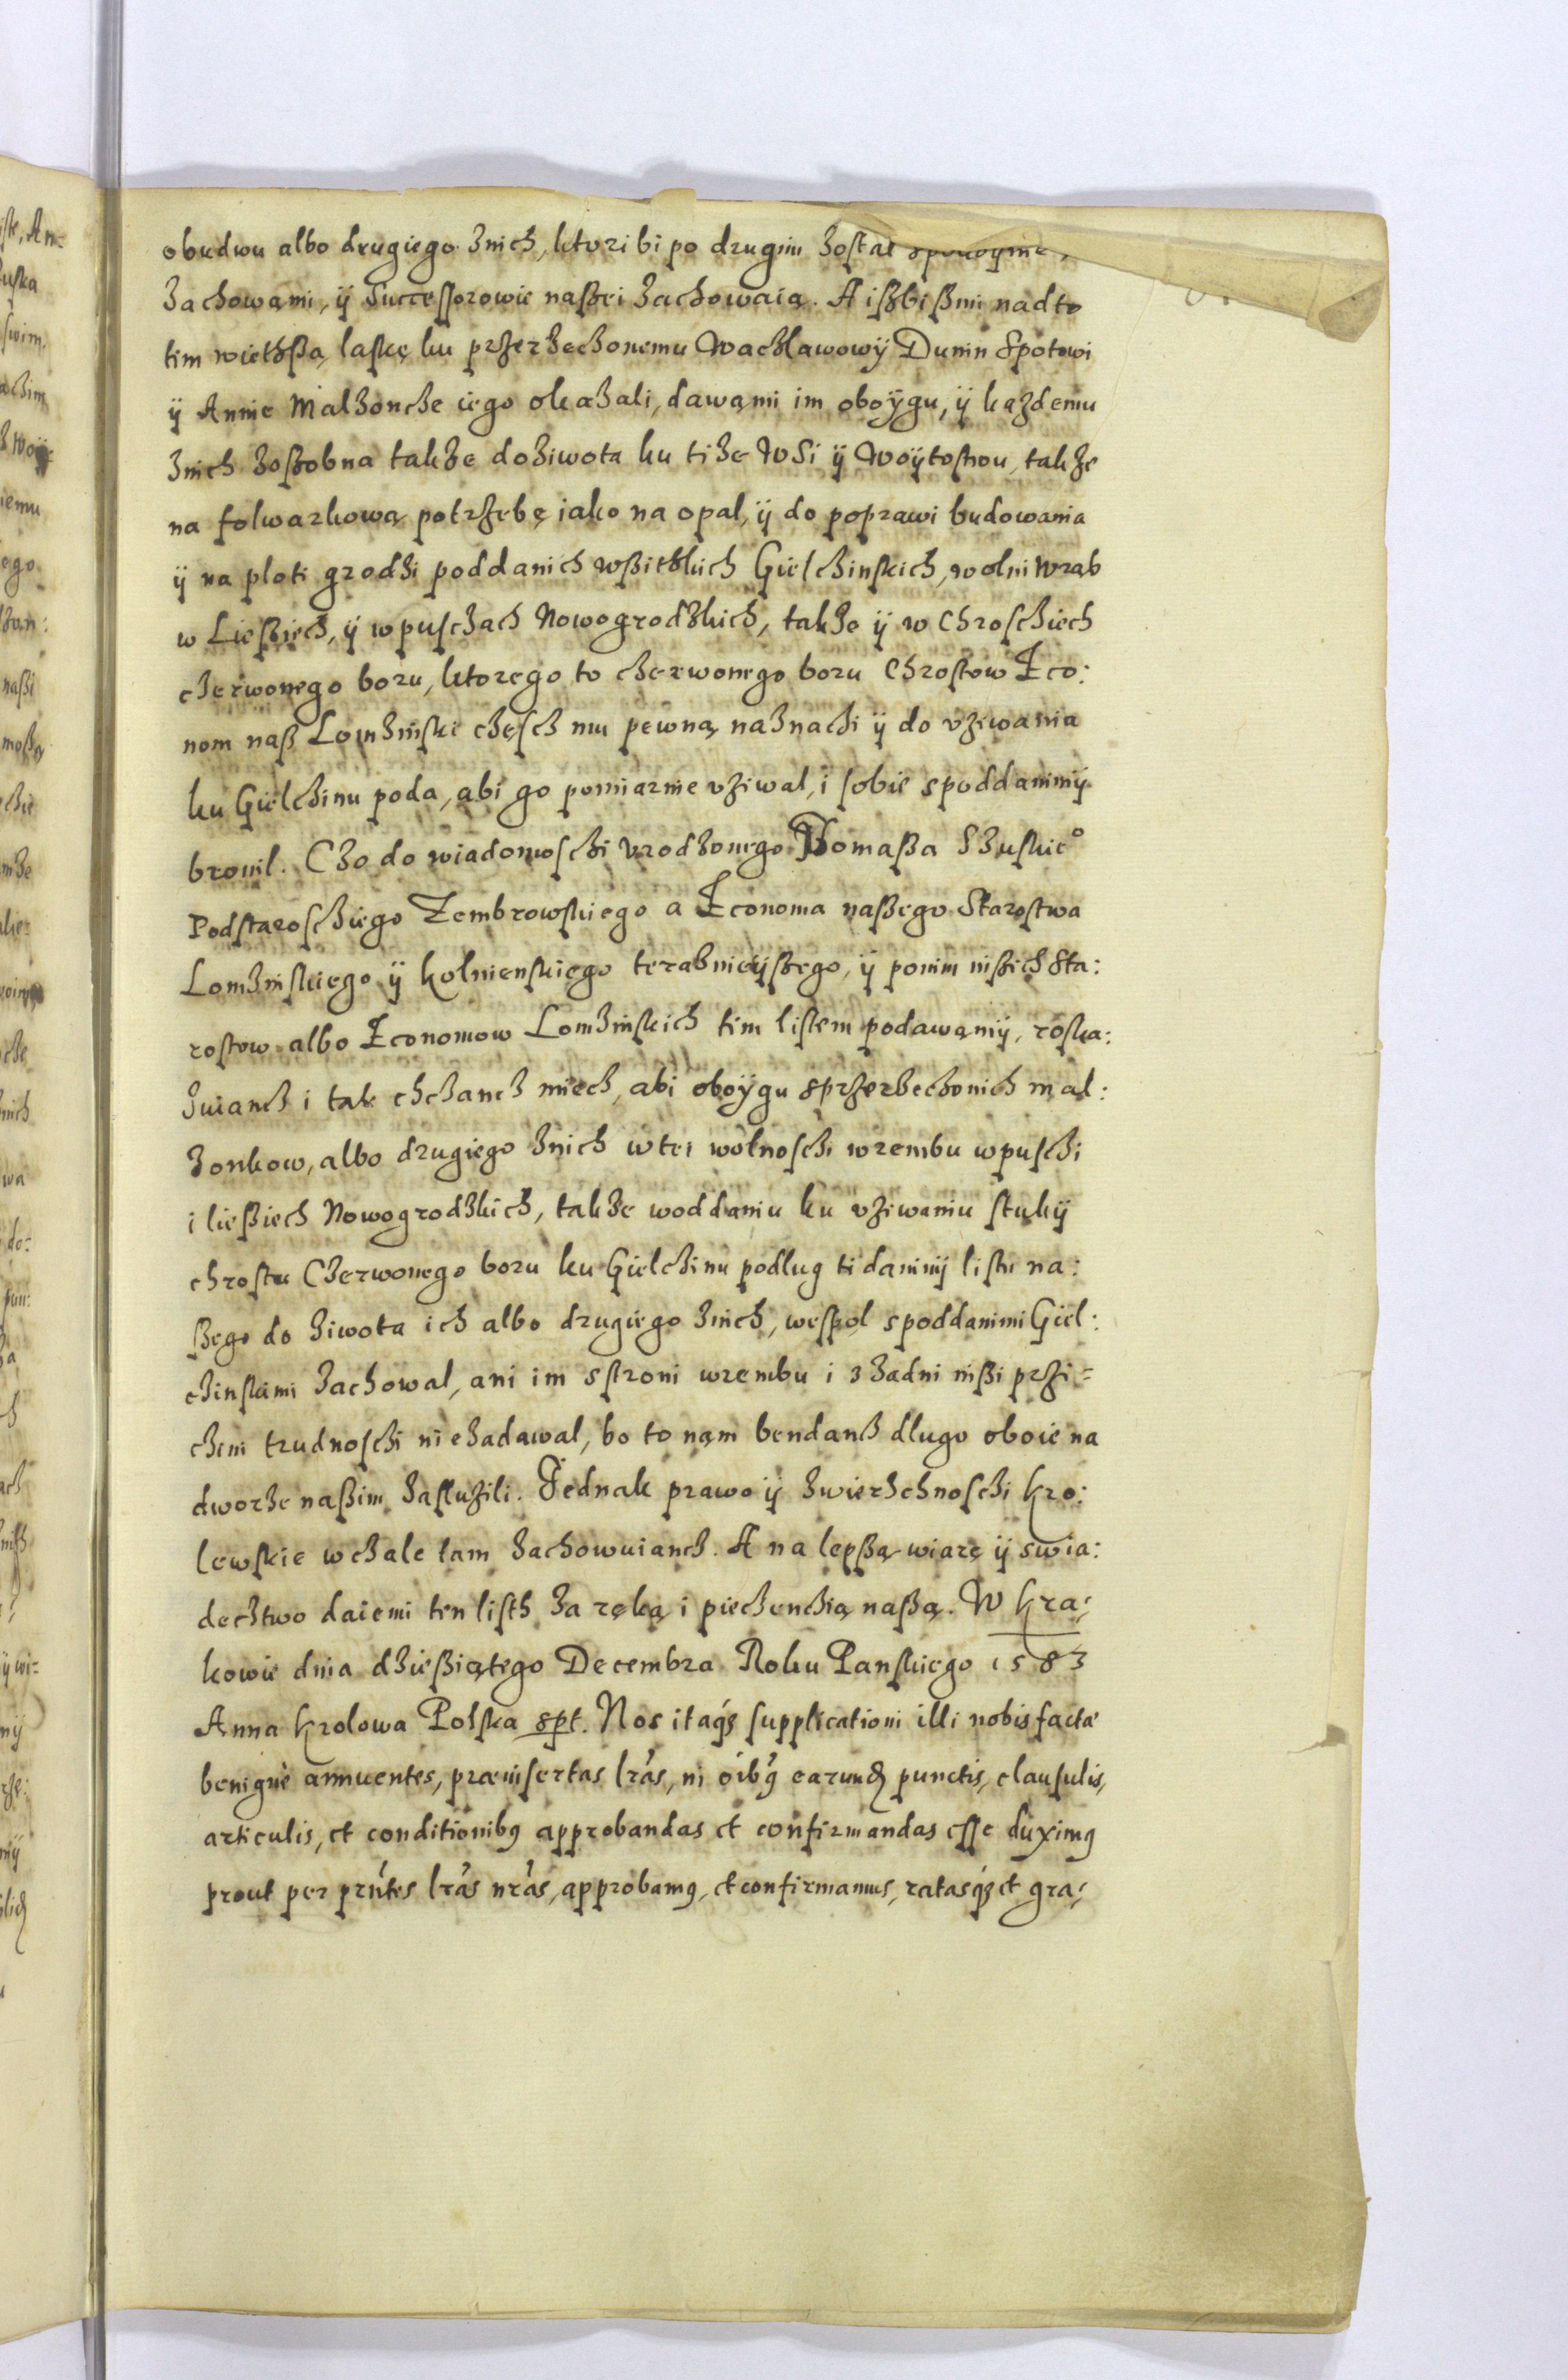 obudwu albo drugiego znich, ktori bi po drugim zostal spokoynie,
zachowąmi, ÿ Successorowie naßzei zachowaią. A ißzbißmi nadto
tim wiethßą laskę ku przerzeczonemu Waczlawowÿ Dunin Spotowi
ÿ Annie Malzoncze iego okazali, dawąmi im oboÿgu, ÿ kązdemu
znich zoßobna takze doziwota ku tize Wsi ÿ Woÿtostwu, takze
na folwarkową potrzebę iako na opal, ÿ do poprawi budowania
ÿ na ploti grodzi poddanich wßitzkich Gielczinskich, wolni Wrąb
w Liesßiech, ÿ w pusczach Nowogrodzkich, takze ÿ w Chrosciech
czerwonego boru, ktorego to czerwonego boru Chrostow Eco:
nom naß Lomzinski częscz mu pewną naznaczi ÿ do vziwania
ku Gielczinu poda, abi go pomiarnie vziwal, i sobie spoddanimÿ
bronil. Czo do wiadomosczi Vrodzonego Thomaßa Szuskie°
Podstarosciego Zembrowskiego a Economa naßego Starostwa
Lomzinskiego ÿ kolnienskiego teraznieÿßego, ÿ ponim nißich Sta:
rostow albo Economow Lomzinskich tim listem podawąmÿ, roska:
zuiancz i tak chczancz miecz, abi oboÿgu sprzerzeczonich mal:
zonkow, albo drugiego znich w tei wolnosczi wrembu w pusczi
i liesßiech Nowogrodzkich, takze woddaniu ku vziwaniu stukÿ
chrostu Czerwonego boru ku Gielczinu podlug ti danimÿ listu na:
ßego do ziwota ich albo drugiego znich, wespol spoddanimi Giel:
czinskimi zachowal, ani im s stroni wrembu i z zadni nißi przi=
czini trudnosczi niezadawal, bo to nąm bendancz dlugo oboie na
dworze naßim zasluzili. Jednak prawo ÿ zwierzchnosczi kro:
lewskie wczale tam zachowuiancz. A na lepßą wiarę ÿ swia:
decztwo daiemi ten listh za ręką i pieczenczią naßą. W kra:
kowie dnia dziesßiątego Decembra Roku Panskiego 1583
Anna krolowa Polska spt. Nos itaq́ꝫ supplicationi illi nobis factæ
benignè annuentes, præinsertas lrás, in oı́bꝯ earundꝫ punctis, clausulis,
articulis, et conditionibꝯ approbandas et confirmandas esse duximꝯ
prout per prńtes lrás nrás, approbamꝯ, et confirmamus, ratasq́ꝫ et gra: